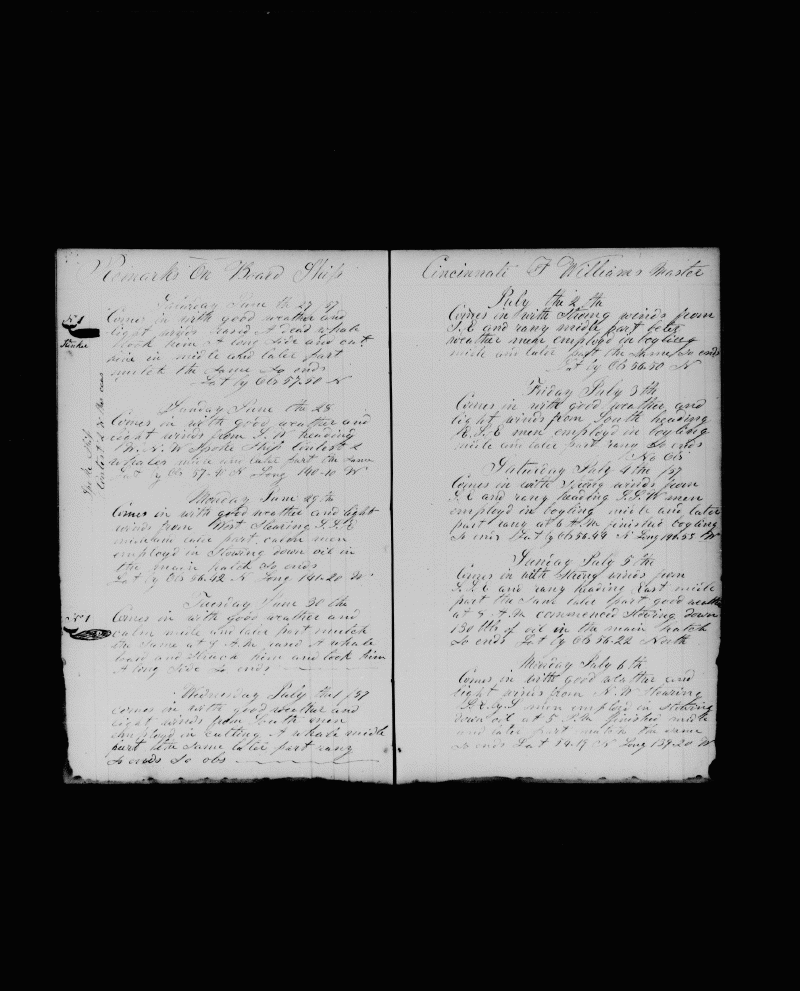 Remarks On Board Ship
Saturday June th 27 57
Comes in with good weather and
light winds raised A dead whale
took him A long Side and cut
him in midle and later part
mutch the Same So ends
Lat by Obs 57-50 N
Sunday June the 28
Comes in with good weather and
light winds from S. W heading
W. N. W Spoke Ship Contest 2
whales midle and later part the Same
Lat by Obs 57-11 N Long 140-10 W
Monday June 29 th
Comes in with good weather and light
winds from West Stearing S.S.E
later part calm men
employd in Stowing down oil in
the main hatch So ends
Lat by Obs 56.42 N Long 141-20 W
Tuesday June 30 the
Comes in with good weather and
calm midle and later part mutch
the Same at 9 A.M raised A whale
and Struck him and took him
A long Side So ends
Wednesday July the 1 /57
comes in with good weather and
light winds from South men
employd in cutting A whale midle
part the Same later part rany
So ends No obs
No 1
Spoke Ship
Contest 2
No 1
Cincinnati F Williams Master
July the 2 th
Comes in with Strong winds from
S.E and rany midle part
weather men employd in boyling
midle and later part the Same So ends
Lat by Obs 56.50 N
Friday July 3 th
Comes in with good weather and
light winds from South heading
E.S.E men employd in boyling
midle and later part rany So ends
No Obs
Saturday July 4 the /57
Comes in with Strong winds from
S.E and rany heading S.S.W men
employd in boyling midle and later
part rany at 6 A.M finished boyling
So ends Lat by Obs 56.49 N Long W
Sunday July 5 the
Comes in with Strong winds from
S.S.E and rany heading East midle
part the Same later part good weather
at 8 A.M commenced Stowing down
130 bbls of oil in the main hatch
So ends Lat by Obs 56-22 North
Monday July 6 th
Comes in with good weather and
light winds from N. W Stearing
men employd in stowing
down oil at 5 P.M finished midle
and later part mutch the same
So ends Lat N Long 139-20 W